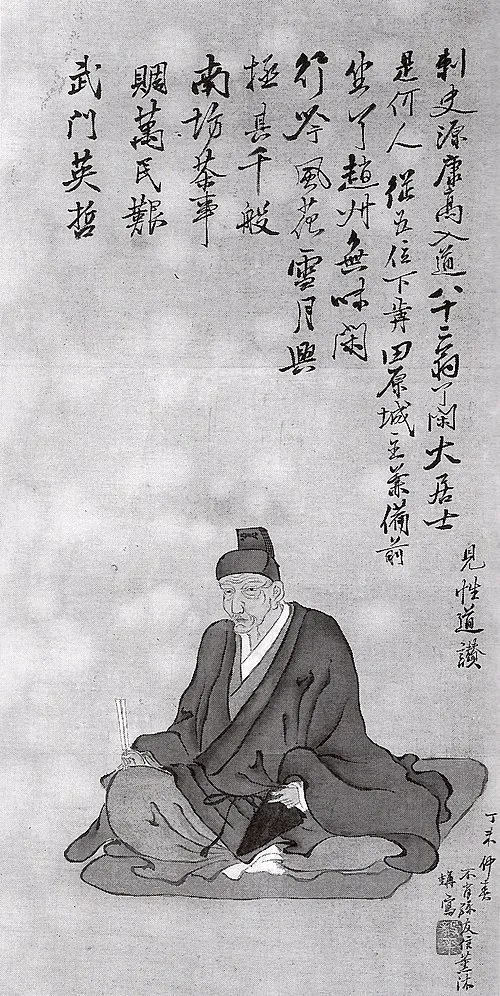 武門英哲
賙萬民艱
南坊茶事
極其千般
行吟風花雪月興
坐了趙州無味閑
是何人 從五位下 田原城主兼備前
刺史源康高入道八十二翁了閑大居士
見性道讃
丁未仲春
不肖孫友信薫沐
拜寫